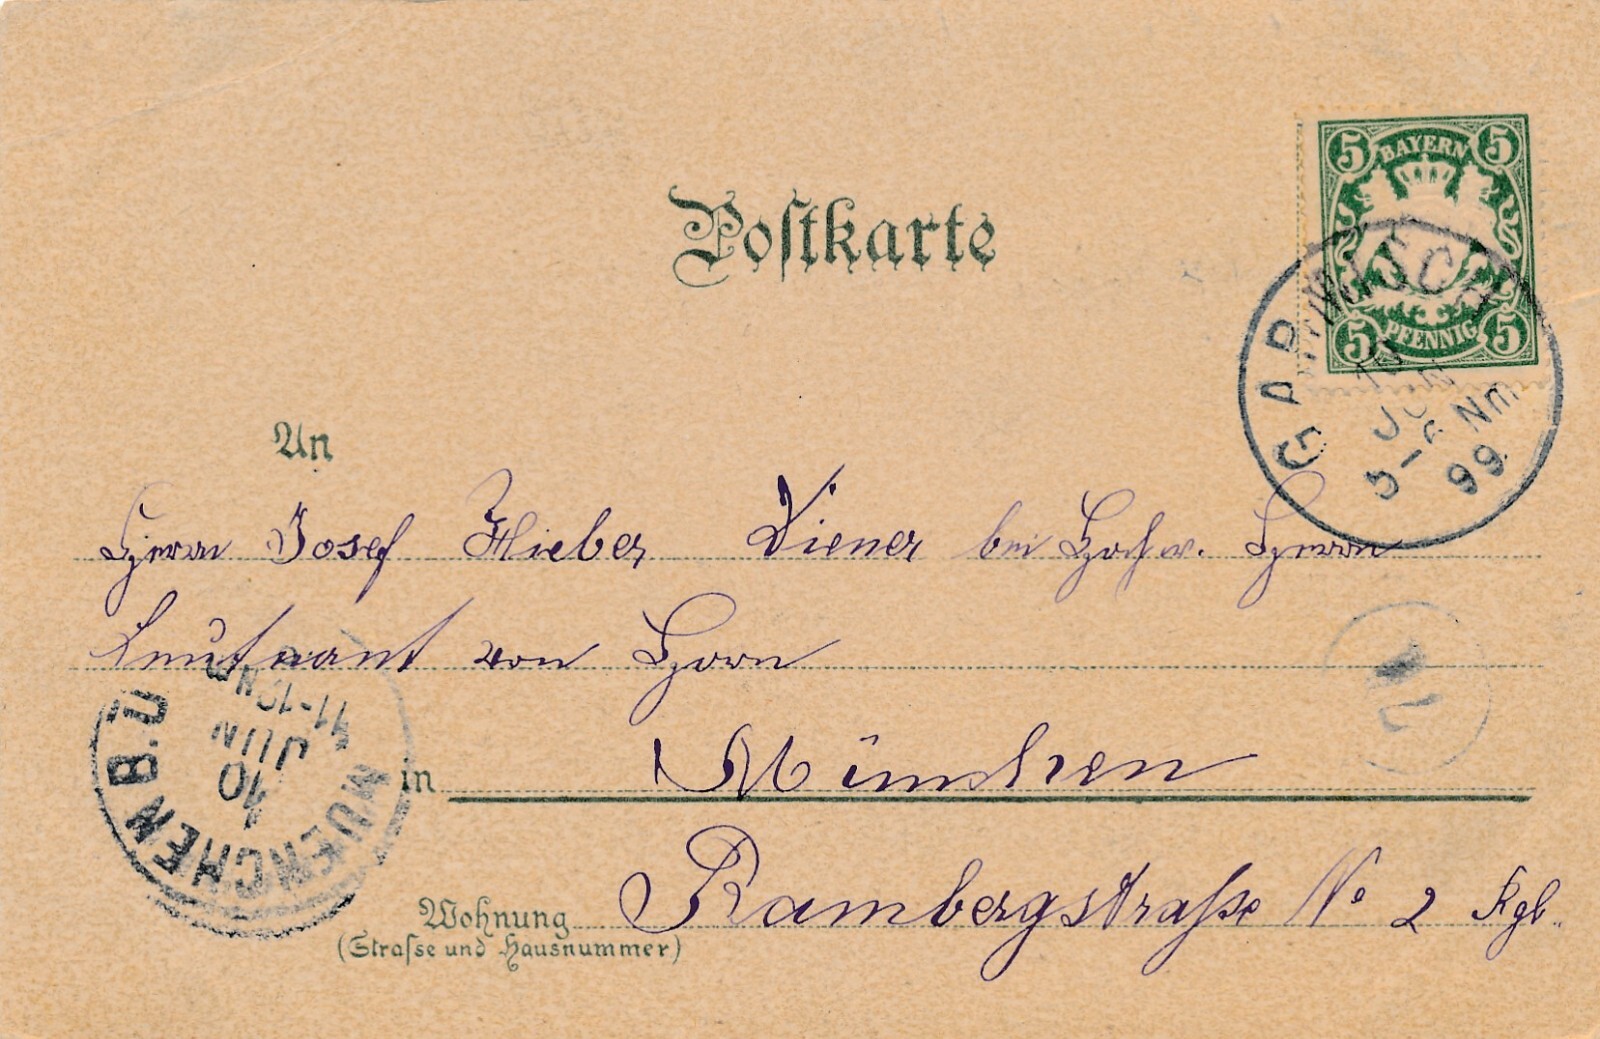 5 BAYERN 5
Postkarte
5 PFENNIG 5
GARMISCH
10
JUN
5-6 Nm
99
An
Herrn Josef Hieber Diener bei Hochw. Herrn
Leutnant von Horn
in München
Wohnung Rambergstraße No 2 Rgb.
(Strasse und Hausnummer)
MUENCHEN B.U
10
JUN
11-12 Nm